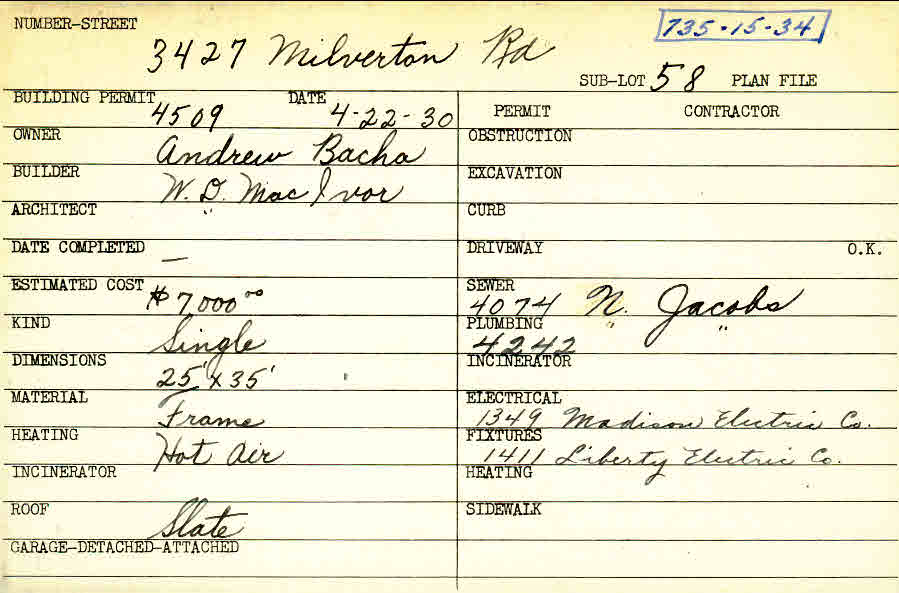 NUMBER-STREET 735-15-34
3427 Milverton Rd
SUB-LOT 58 PLAN FILE
BUILDING PERMIT DATE
4509 4-22-30
PERMIT CONTRACTOR
OWNER Andrew Bacha
OBSTRUCTION
BUILDER W. D. Mac Ivor
EXCAVATION
ARCHITECT "
CURB
DATE COMPLETED —
DRIVEWAY O.K.
ESTIMATED COST $7000.00
SEWER
4074 N. Jacobs
KIND Single
PLUMBING "
4242
DIMENSIONS 25' x 35'
INCINERATOR
MATERIAL Frame
ELECTRICAL
1349 Madison Electric Co.
HEATING Hot Air
FIXTURES
1411 Liberty Electric Co.
INCINERATOR
HEATING
ROOF Slate
SIDEWALK
GARAGE-DETACHED-ATTACHED